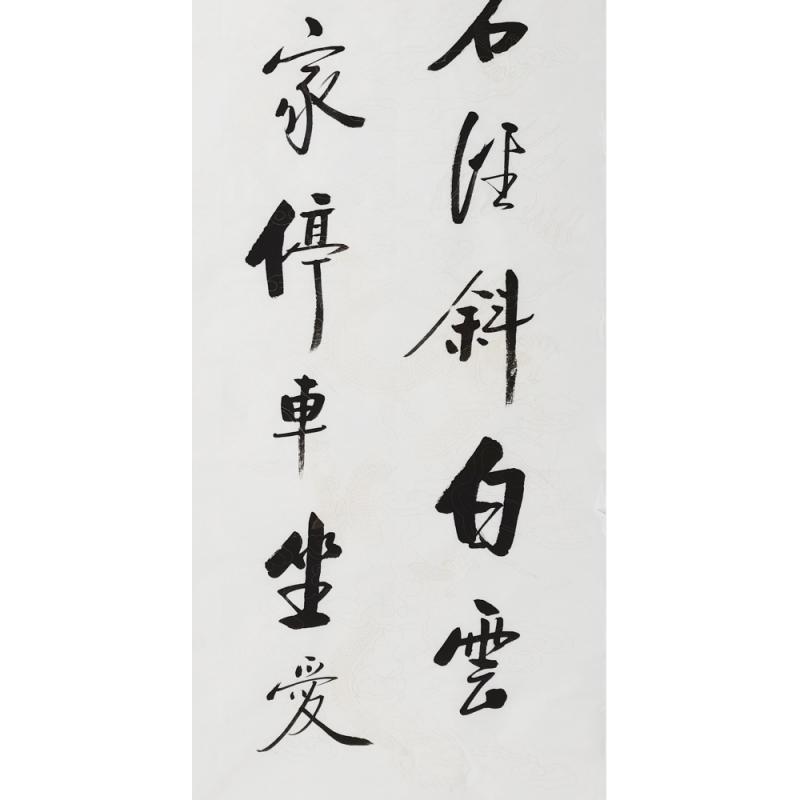 石徑斜白雲
家停車坐愛